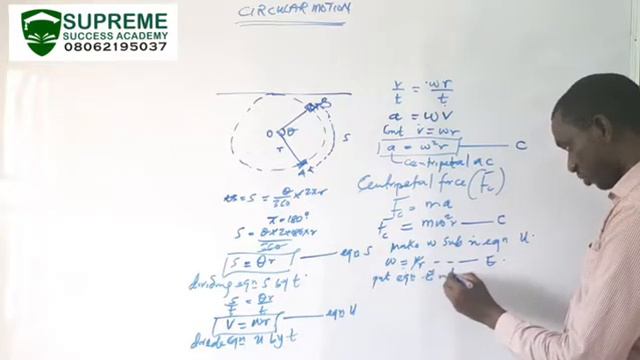 SUPREME
SUCCESS ACADEMY
08062195037
CIRCULAR MOTION
O θ
r
S
AB = S = θ/360 × 2πr
π = 180°
S = θ × 2×180×r/360
S = θr eqn S
dividing eqn S by t
S/t = θr/t
V = wr eqn U
divide eqn U by t
v/t = wr/t
a = wV
but v = wr
a = w²r C
centripetal ac
Centripetal force (Fc)
Fc = ma
Fc = mw²r C
make w sub in eqn U.
w = V/r - - - E
put eqn E